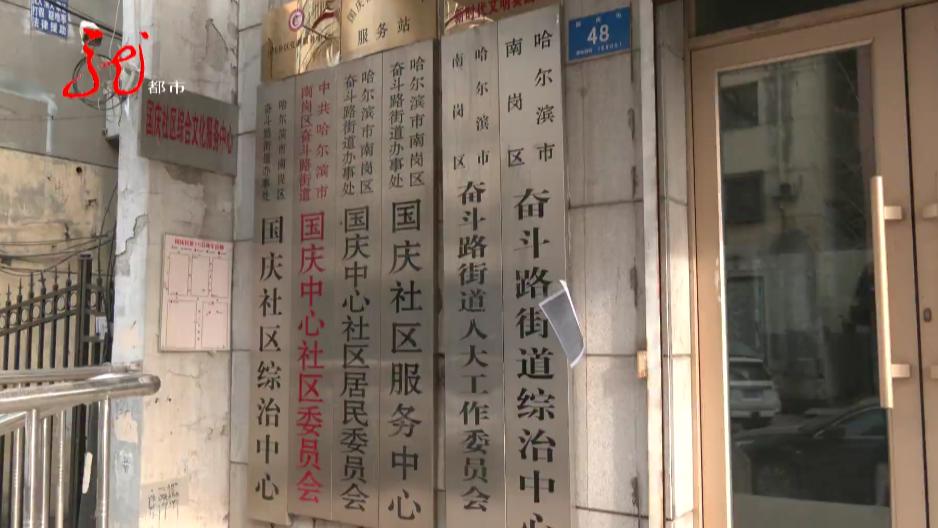 都市
法律援助
国庆社区综合文化服务中心
服务站
48
哈尔滨市南岗区
奋斗路街道办事处
国庆社区综治中心
中共哈尔滨市
南岗区奋斗路街道
国庆中心社区委员会
哈尔滨市南岗区
奋斗路街道办事处
国庆中心社区居民委员会
哈尔滨市南岗区
奋斗路街道办事处
国庆社区服务中心
哈尔滨市
南岗区
奋斗路街道人大工作委员会
哈尔滨市
南岗区
奋斗路街道综治中心